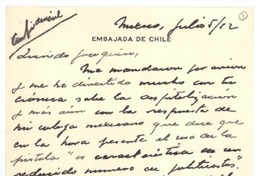 Confidencial
Mexico, julio 5/52
①
EMBAJADA DE CHILE
Querido Joaquín:
Me mandaron por avión
y me he divertido mucho con tu
crónica sobre la despistolización
y más aún con la respuesta de
mi colega mexicano que dice que
en la hora presente el uso de la
pistola "es característica de un
reducido número de politicastros"